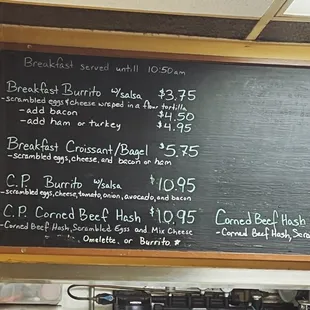 Breakfast served untill 10:50am
Breakfast Burrito w/salsa $3.75
-scrambled eggs & cheese wraped in a flour tortilla
-add bacon $4.50
-add ham or turkey $4.95
Breakfast Croissant/Bagel $5.75
-scrambled eggs, cheese, and bacon or ham
C.P. Burrito w/salsa $10.95
-scrambled eggs, cheese, tomato, onion, avocado, and bacon
C.P. Corned Beef Hash $10.95
-Corned Beef Hash, Scrambled Eggs and Mix Cheese
Omelette, or Burrito. *
Corned Beef Hash
-Corned Beef Hash, Scra